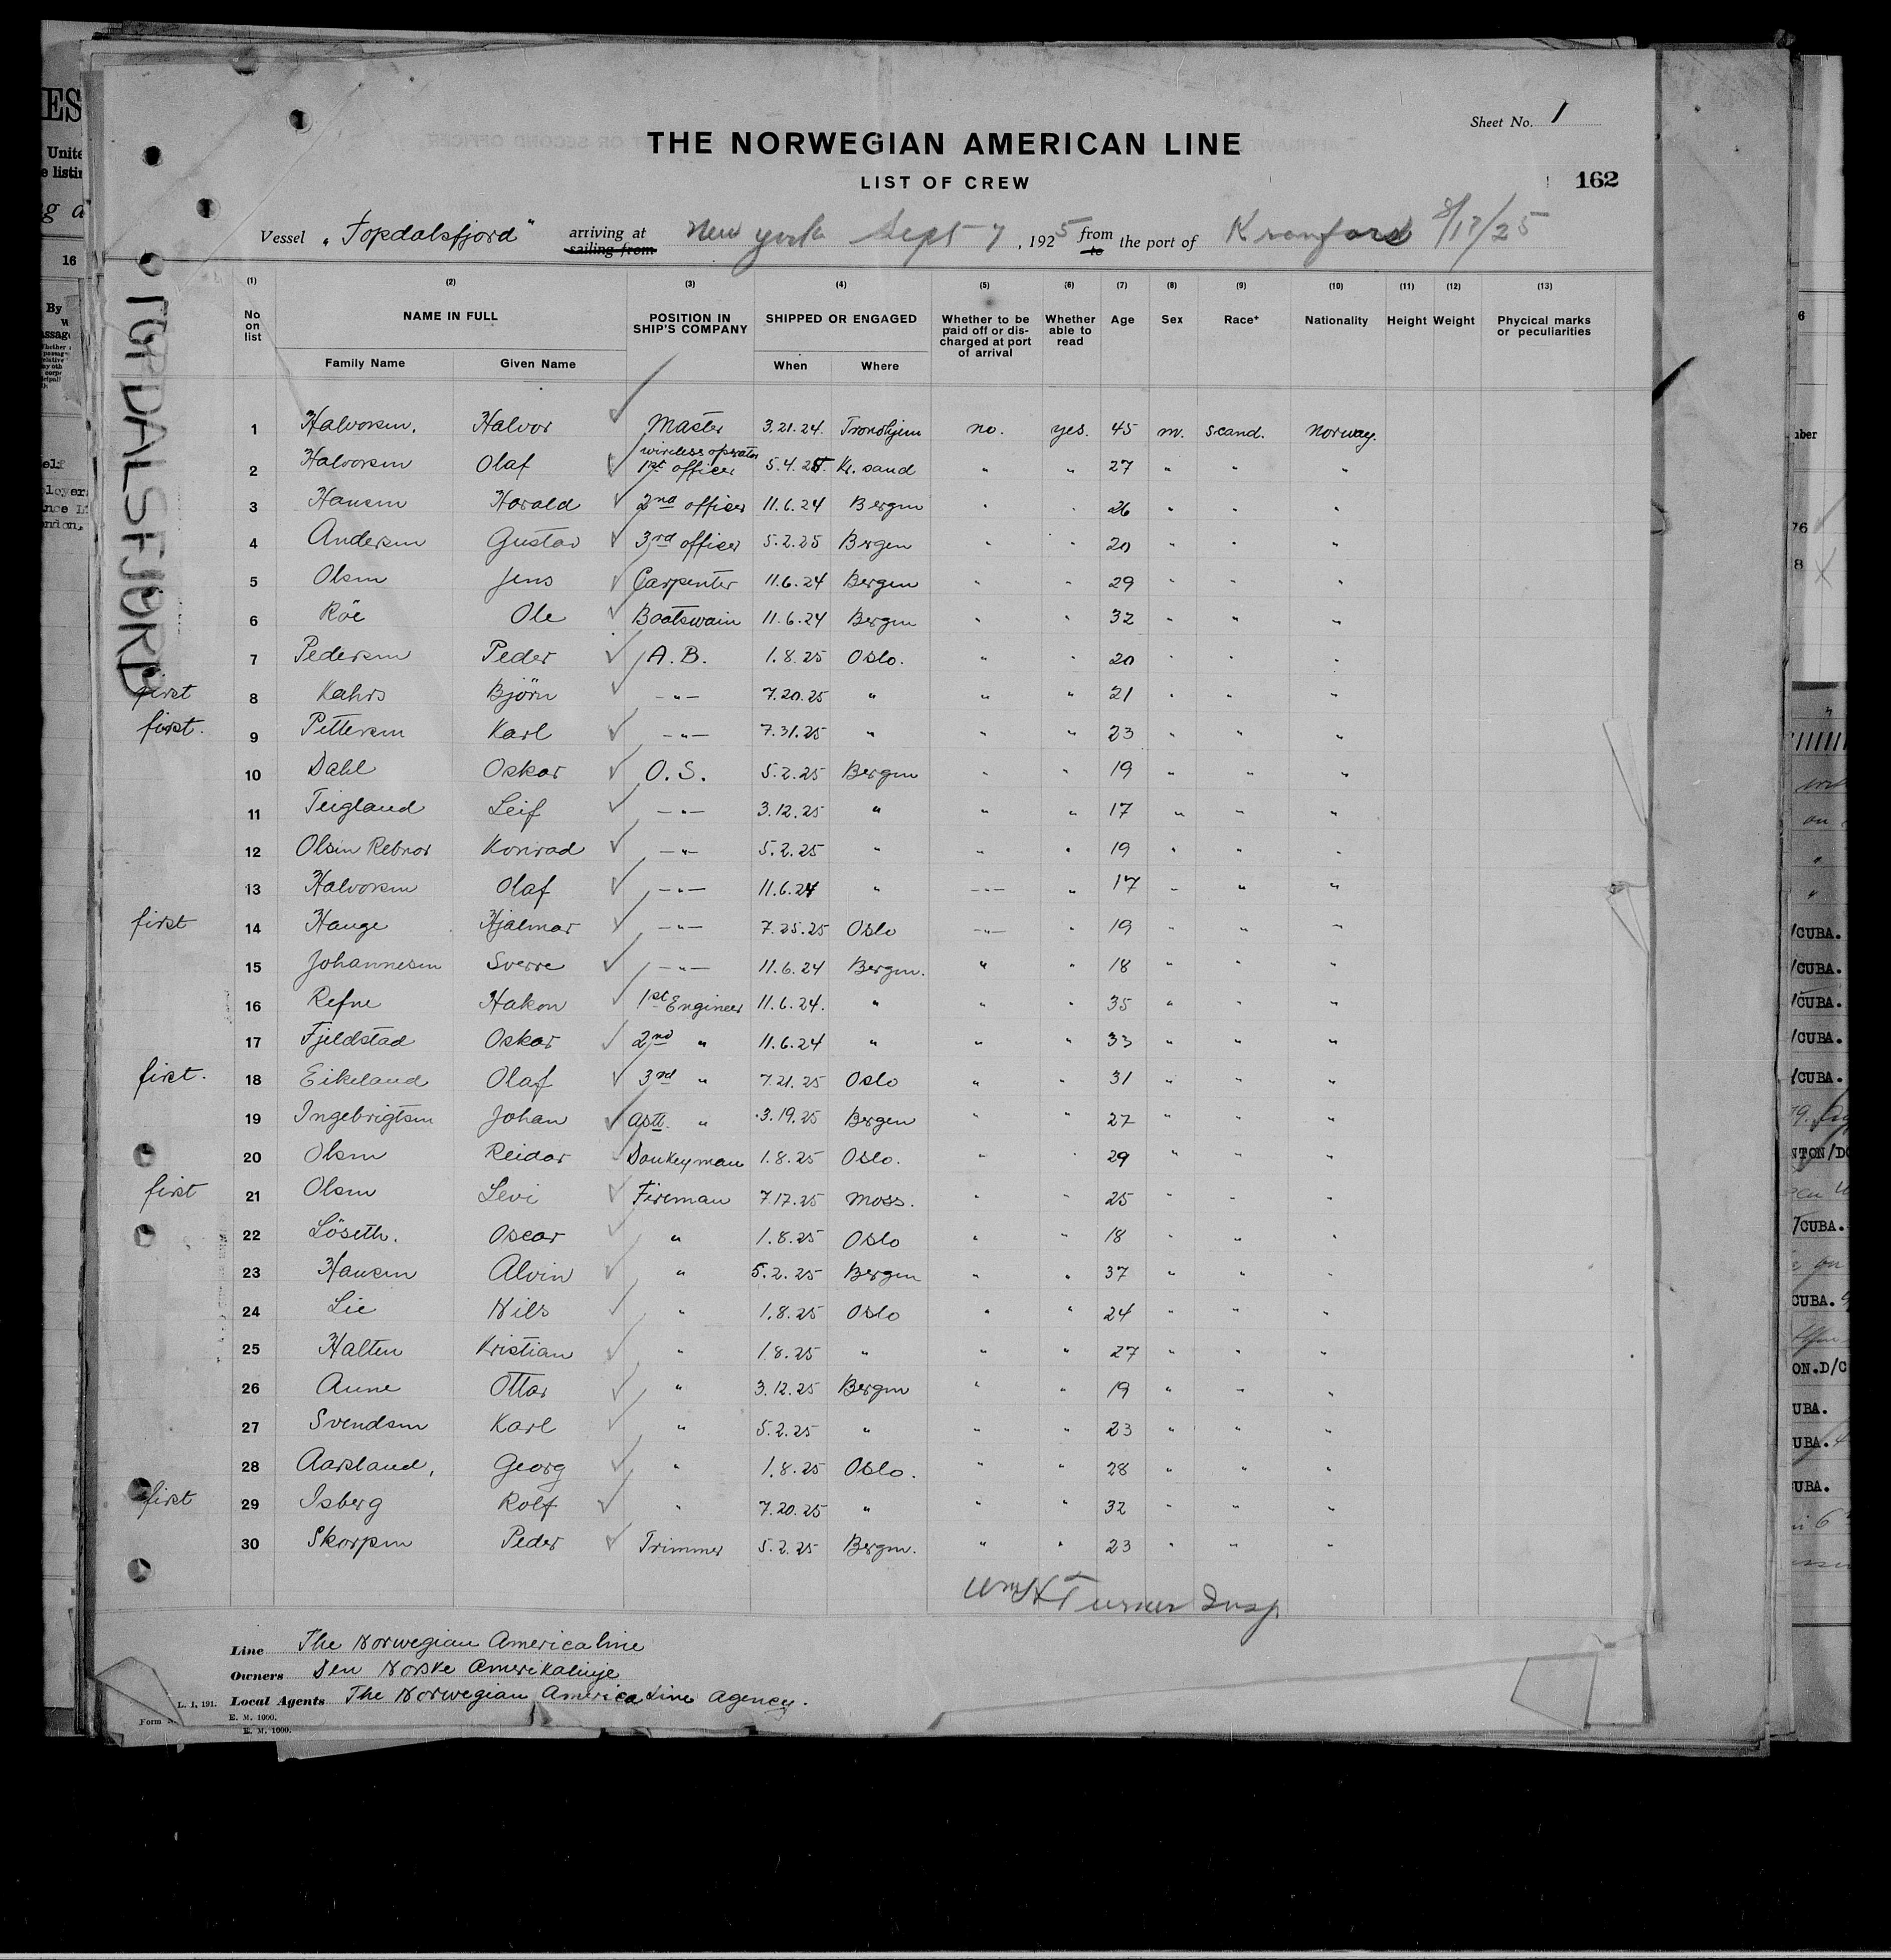 Sheet No. 1
THE NORWEGIAN AMERICAN LINE
LIST OF CREW
162
Vessel "Topdalsfjord" arriving at sailing from New York Sept 7, 1925 from to the port of 8/17/25
TOPDALSFJORD
(1) (2) (3) (4) (5) (6) (7) (8) (9) (10) (11) (12) (13)
No on list NAME IN FULL POSITION IN SHIP'S COMPANY SHIPPED OR ENGAGED Whether to be paid off or discharged at port of arrival Whether able to read Age Sex Race* Nationality Height Weight Phycical marks or peculiarities
Family Name Given Name When Where
1 Halvorsen. Halvor Master 3.21.24. Trondhjem no. yes. 45 m. scand. Norway.
wireless operator
2 Halvorsen Olaf 1st officer 5.4.25. Kr. sand " " 27 " " "
3 Hansen Harald 2nd officer 11.6.24 Bergen " " 26 " " "
4 Andersen Gustav 3rd officer 5.2.25 Bergen " " 20 " " "
5 Olsen Jens Carpenter 11.6.24 Bergen " " 29 " " "
6 Röe Ole Boatswain 11.6.24 Bergen " " 32 " " "
7 Pedersen Peder A.B. 1.8.25 Oslo. " " 20 " " "
first 8 Kahrs Björn -"- 7.20.25 " " " 21 " " "
first. 9 Pettersen Karl -"- 7.31.25 " " " 23 " " "
10 Dahl Oskar O.S. 5.2.25 Bergen " " 19 " " "
11 Teigland Leif -"- 3.12.25 " " " 17 " " "
12 Olsen Rebnor Konrad -"- 5.2.25 " " " 19 " " "
13 Halvorsen Olaf -"- 11.6.24 " -"- " 17 " " "
first 14 Hauge Hjalmar -"- 7.25.25 Oslo -"- " 19 " " "
15 Johannesen Sverre -"- 11.6.24 Bergen. " " 18 " " "
16 Refne Hakon 1st Engineer 11.6.24. " " " 35 " " "
17 Fjeldstad Oskar 2nd " 11.6.24 " " " 33 " " "
first. 18 Eikeland Olaf 3rd " 7.21.25 Oslo " " 31 " " "
19 Ingebrigtsen Johan Astt. " 3.19.25 Bergen " " 27 " " "
20 Olsen Reidar Donkeyman 1.8.25 Oslo. " " 29 " " "
first 21 Olsen Levi Fireman 7.17.25 Moss. " " 25 " " "
22 Löseth. Oscar " 1.8.25 Oslo " " 18 " " "
23 Hansen Alvin " 5.2.25 Bergen " " 37 " " "
24 Lie Nils " 1.8.25 Oslo " " 24 " " "
25 Halten Kristian " 1.8.25 " " " 27 " " "
26 Aune Ottar " 3.12.25 Bergen " " 19 " " "
27 Svendsen Karl " 5.2.25 " " " 23 " " "
28 Aarsland, Georg " 1.8.25 Oslo. " " 28 " " "
first 29 Isberg Rolf " 7.20.25 " " " 32 " " "
30 Skorpen Peder Trimmer 5.2.25 Bergen. " " 23 " " "
Wm H Turner Insp
Line The Norwegian America line
Owners Den Norske Amerikalinje
L. I, 191. Local Agents The Norwegian America Line Agency.
Form
E. M. 1000.
E. M. 1000.